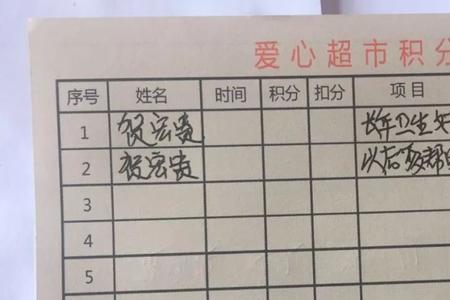 爱心超市积分
序号 姓名 时间 积分 扣分 项目
1 贺宏贵 长年卫生好
2 贺宏贵 以后
3
4
5